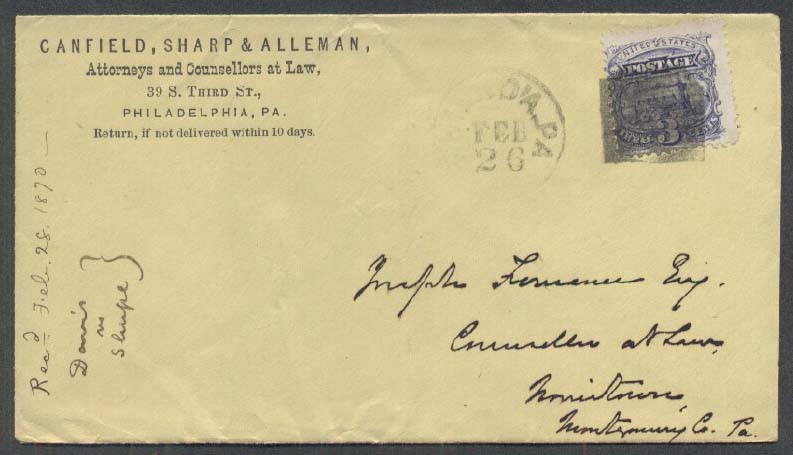 CANFIELD, SHARP & ALLEMAN,
Attorneys and Counsellors at Law,
39 S. THIRD ST.,
PHILADELPHIA, PA.
Return, if not delivered within 10 days.
D'A. PA
FEB
26
UNITED STATES
POSTAGE
3
Joseph Fornance Esq.
Counsellor at Law,
Norristown,
Montgomery Co. Pa.
Recd Feb. 28. 1870 —
Davis
vs
Shupe